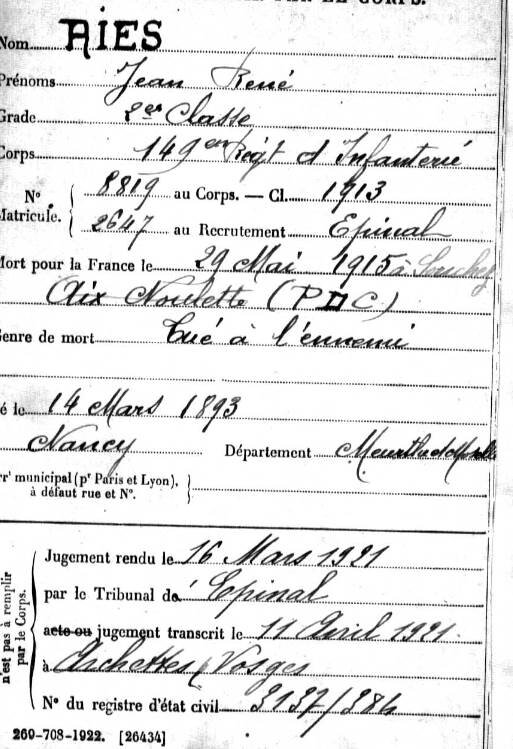 PAR LE CORPS.
Nom AIES
Prénoms Jean René
Grade 2e Classe
Corps 149e Regt d'Infanterie
No 8819 au Corps. — Cl. 1913
Matricule. 2647 au Recrutement Epinal
Mort pour la France le 29 Mai 1915 à Souchez
Aix Noulette (PDC)
Genre de mort Tué à l'ennemi
é le 14 Mars 1893
Nancy Département Meurthe et Moselle
rrt municipal (pr Paris et Lyon),
à défaut rue et No.
n'est pas à remplir
par le Corps.
Jugement rendu le 16 Mars 1921
par le Tribunal de Epinal
acte ou jugement transcrit le 11 Avril 1921
à Archettes (Vosges
No du registre d'état civil 3137/386
269-708-1922. [26434]